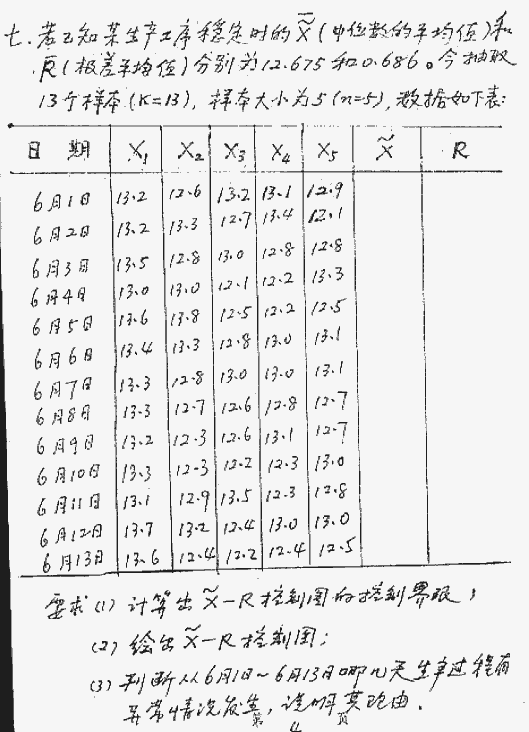 七.若已知某生产工序稳定时的X̃(中位数的平均值)和
R̄(极差平均值)分别为12.675和0.686。今抽取
13个样本(K=13),样本大小为5(n=5),数据如下表:
日 期 X₁ X₂ X₃ X₄ X₅ X̃ R
6月1日 13.2 12.6 13.2 13.1 12.9
6月2日 13.2 13.3 12.7 13.4 12.1
6月3日 13.5 12.8 13.0 12.8 12.8
6月4日 13.0 13.0 12.1 12.2 13.3
6月5日 13.6 13.8 12.5 12.2 12.5
6月6日 13.4 13.3 12.8 13.0 13.1
6月7日 13.3 12.8 13.0 13.0 13.1
6月8日 13.3 12.7 12.6 12.8 12.7
6月9日 13.2 12.3 12.6 13.1 12.7
6月10日 13.3 12.3 12.2 12.3 13.0
6月11日 13.1 12.9 13.5 12.3 12.8
6月12日 13.7 13.2 12.4 13.0 13.0
6月13日 13.6 12.4 12.2 12.4 12.5
要求(1)计算出X̃-R控制图的控制界限;
(2)绘出X̃-R控制图;
(3)判断从6月1日~6月13日哪几天生产过程有
异常情况发生,说明其理由.
第 4 页